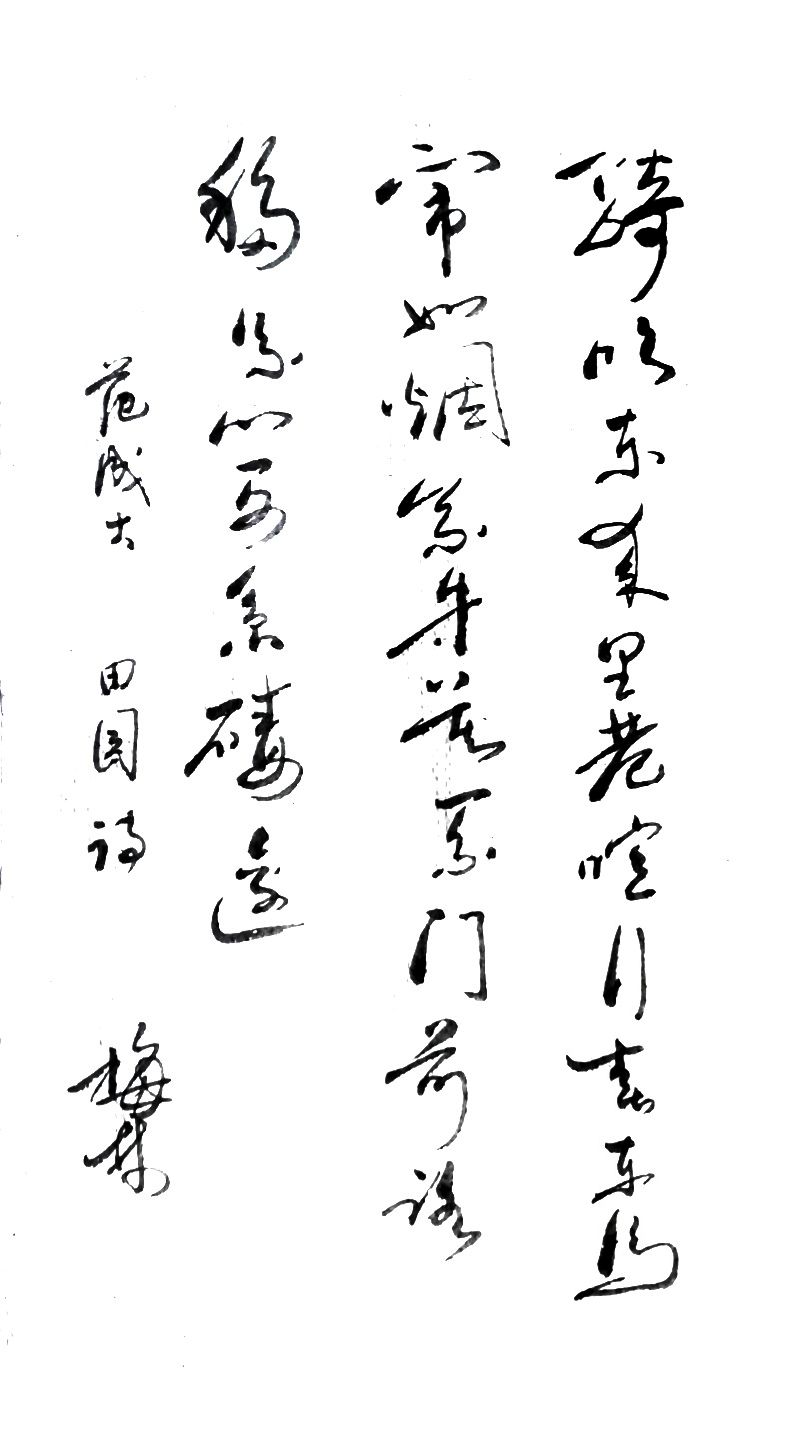 骑吹东来里巷喧行春车马
闹如烟系牛莫系门前路
移系门西碌碡边
范成大 田园诗 梅林